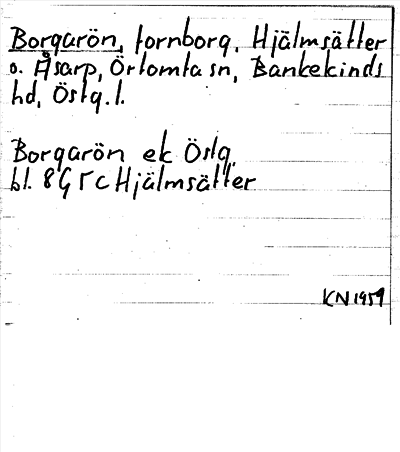 Borgarön, fornborg. Hjälmsätter
o. Åsarp, Örtomta sn, Bankekinds
hd, Östg. l.
Borgarön ek Östg.
bl. 8G f c Hjälmsätter
KN 1959